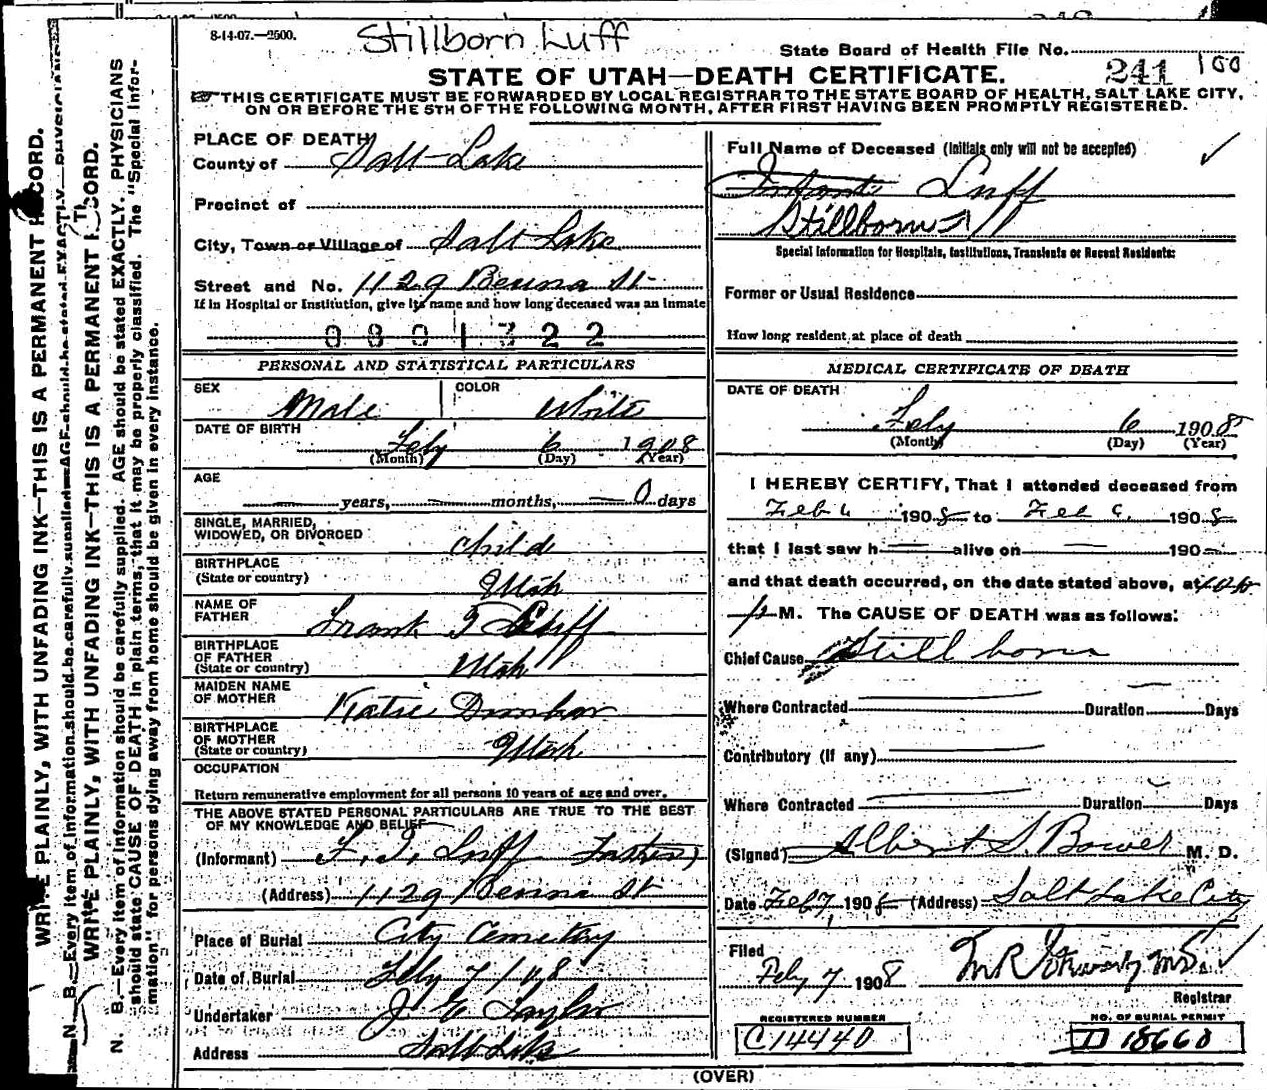 8-14-07.—2500.
Stillborn Luff
State Board of Health File No.
241 100
STATE OF UTAH—DEATH CERTIFICATE.
THIS CERTIFICATE MUST BE FORWARDED BY LOCAL REGISTRAR TO THE STATE BOARD OF HEALTH, SALT LAKE CITY,
ON OR BEFORE THE 5TH OF THE FOLLOWING MONTH, AFTER FIRST HAVING BEEN PROMPTLY REGISTERED.
PLACE OF DEATH
County of Salt Lake
Precinct of
City, Town or Village of Salt Lake
Street and No. 1129 St
If in Hospital or Institution, give its name and how long deceased was an inmate
0801322
PERSONAL AND STATISTICAL PARTICULARS
SEX Male COLOR White
DATE OF BIRTH Feby 6 1908
(Month) (Day) (Year)
AGE
years, months, 0 days
SINGLE, MARRIED,
WIDOWED, OR DIVORCED child
BIRTHPLACE
(State or country) Utah
NAME OF
FATHER Frank I Luff
BIRTHPLACE
OF FATHER
(State or country) Utah
MAIDEN NAME
OF MOTHER Katie Dunbar
BIRTHPLACE
OF MOTHER
(State or country) Utah
OCCUPATION
Return remunerative employment for all persons 10 years of age and over.
THE ABOVE STATED PERSONAL PARTICULARS ARE TRUE TO THE BEST
OF MY KNOWLEDGE AND BELIEF
(Informant) F. I. Luff
(Address) 1129 St
Place of Burial City Cemetery
Date of Burial Feby 7/08
Undertaker J E Taylor
Address Salt Lake
Full Name of Deceased (Initials only will not be accepted)
Infant Luff
Stillborn
Special Information for Hospitals, Institutions, Transients or Recent Residents:
Former or Usual Residence
How long resident at place of death
MEDICAL CERTIFICATE OF DEATH
DATE OF DEATH
Feby 6 1908
(Month) (Day) (Year)
I HEREBY CERTIFY, That I attended deceased from
Feb 6 1908 to Feb 6, 1908
that I last saw h alive on 190
and that death occurred, on the date stated above, at
P M. The CAUSE OF DEATH was as follows:
Chief Cause Still born
Where Contracted Duration Days
Contributory (if any)
Where Contracted Duration Days
(Signed) Albert S. Bower M. D.
Date Feb 7, 1908 (Address) Salt Lake City
Filed
Feby 7 1908
Registrar
REGISTERED NUMBER
C14440
NO. OF BURIAL PERMIT
D 18660
(OVER)
WRITE PLAINLY, WITH UNFADING INK—THIS IS A PERMANENT RECORD.
N. B.—Every item of information should be carefully supplied. AGE should be stated EXACTLY. PHYSICIANS
WRITE PLAINLY, WITH UNFADING INK—THIS IS A PERMANENT RECORD.
N. B.—Every item of information should be carefully supplied. AGE should be stated EXACTLY. PHYSICIANS
should state CAUSE OF DEATH in plain terms, that it may be properly classified. The "Special Infor-
mation" for persons dying away from home should be given in every instance.